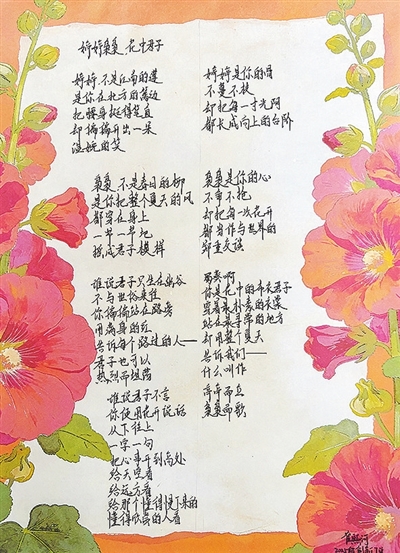 婷婷袅袅 花中君子
婷婷 不是江南的莲
是你在北方的篱边
把腰身挺得笔直
却偏偏开出一朵
温婉的笑
袅袅 不是春日的柳
是你把整个夏天的风
都穿在身上
一节一节地
拔成君子模样
谁说君子只生在幽谷
不与世俗来往
你偏偏站在路旁
用满身的红
告诉每个路过的人——
君子也可以
热烈而坦荡
谁说君子不言
你使用花开说话
从下往上
一字一句
把心事开到高处
给天空看
给远方看
给那个懂得慢下来的
懂得欣赏的人看
婷婷是你的骨
不蔓不枝
却把每一寸光阴
都长成向上的台阶
袅袅是你的心
不卑不亢
却把每一次花开
都当作与世界的
郑重交谈
蜀葵啊
你是花中的布衣君子
穿着最朴素的衣裳
站在最寻常的地方
却用整个夏天
告诉我们——
什么叫作
亭亭而立
袅袅而歌